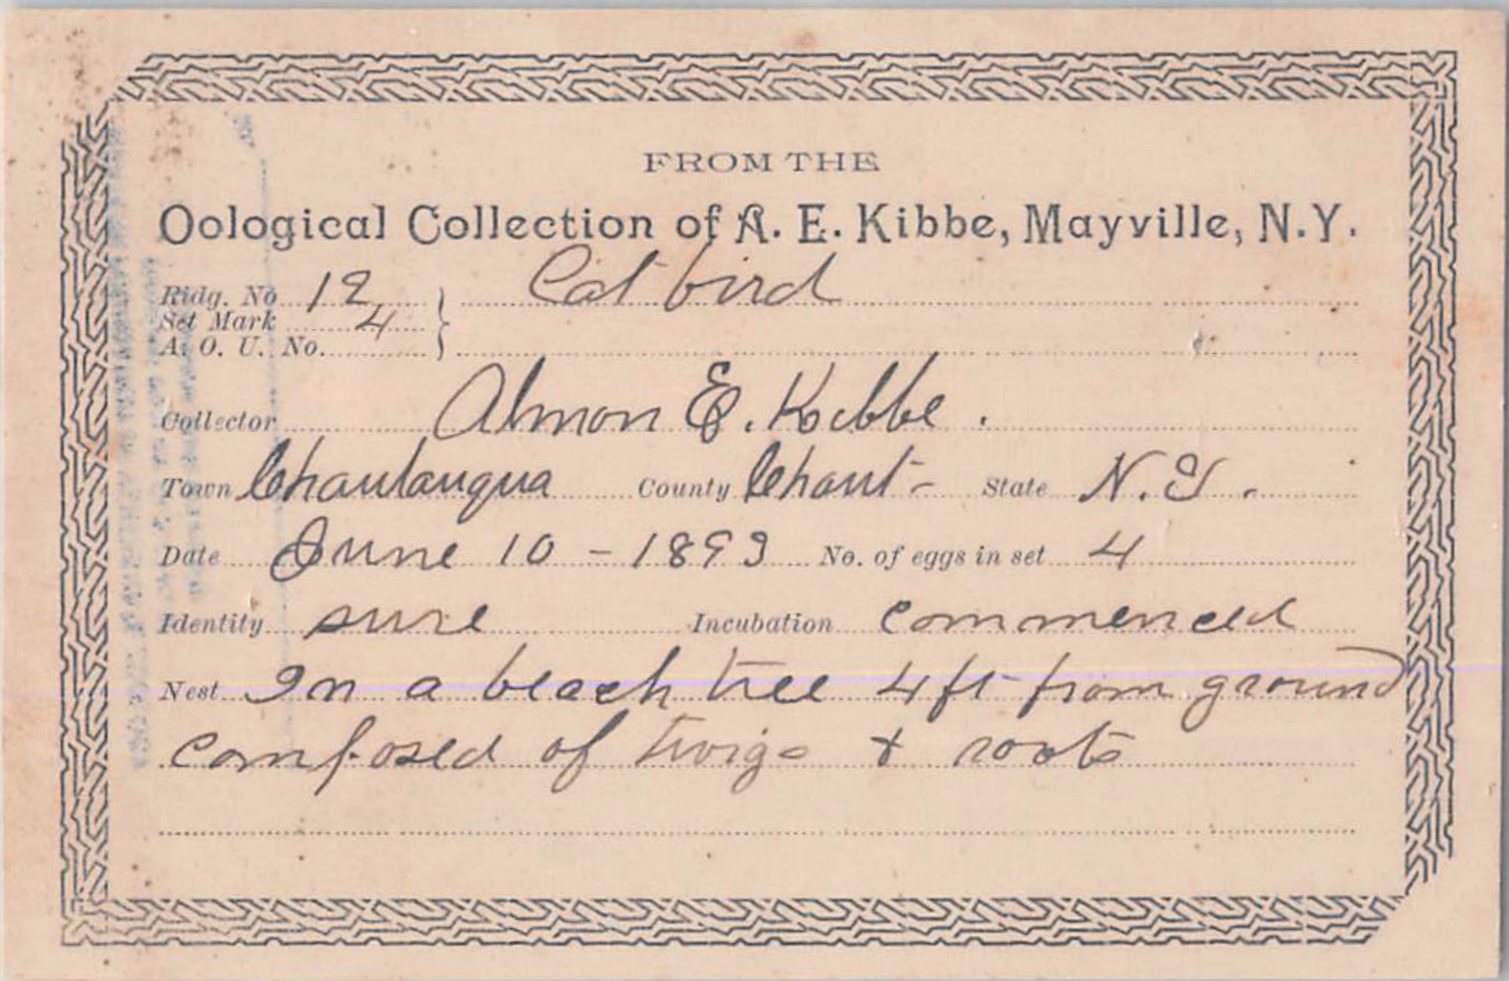 FROM THE
Oological Collection of A. E. Kibbe, Mayville, N.Y.
Ridg. No 12 Cat bird
Set Mark 4
A. O. U. No.
Collector Almon E. Kibbe.
Town Chautauqua County Chaut- State N.Y.
Date June 10 - 1893 No. of eggs in set 4
Identity sure Incubation commenced
Nest In a beach tree 4 ft from ground
composed of twigs + roots